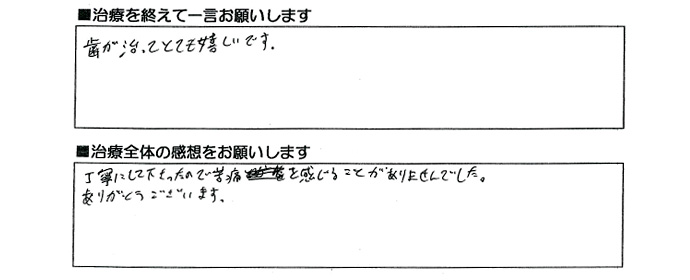 ■治療を終えて一言お願いします
歯が治ってとても嬉しいです。
■治療全体の感想をお願いします
丁寧にして下さったので苦痛を感じることがありませんでした。
ありがとうございます。